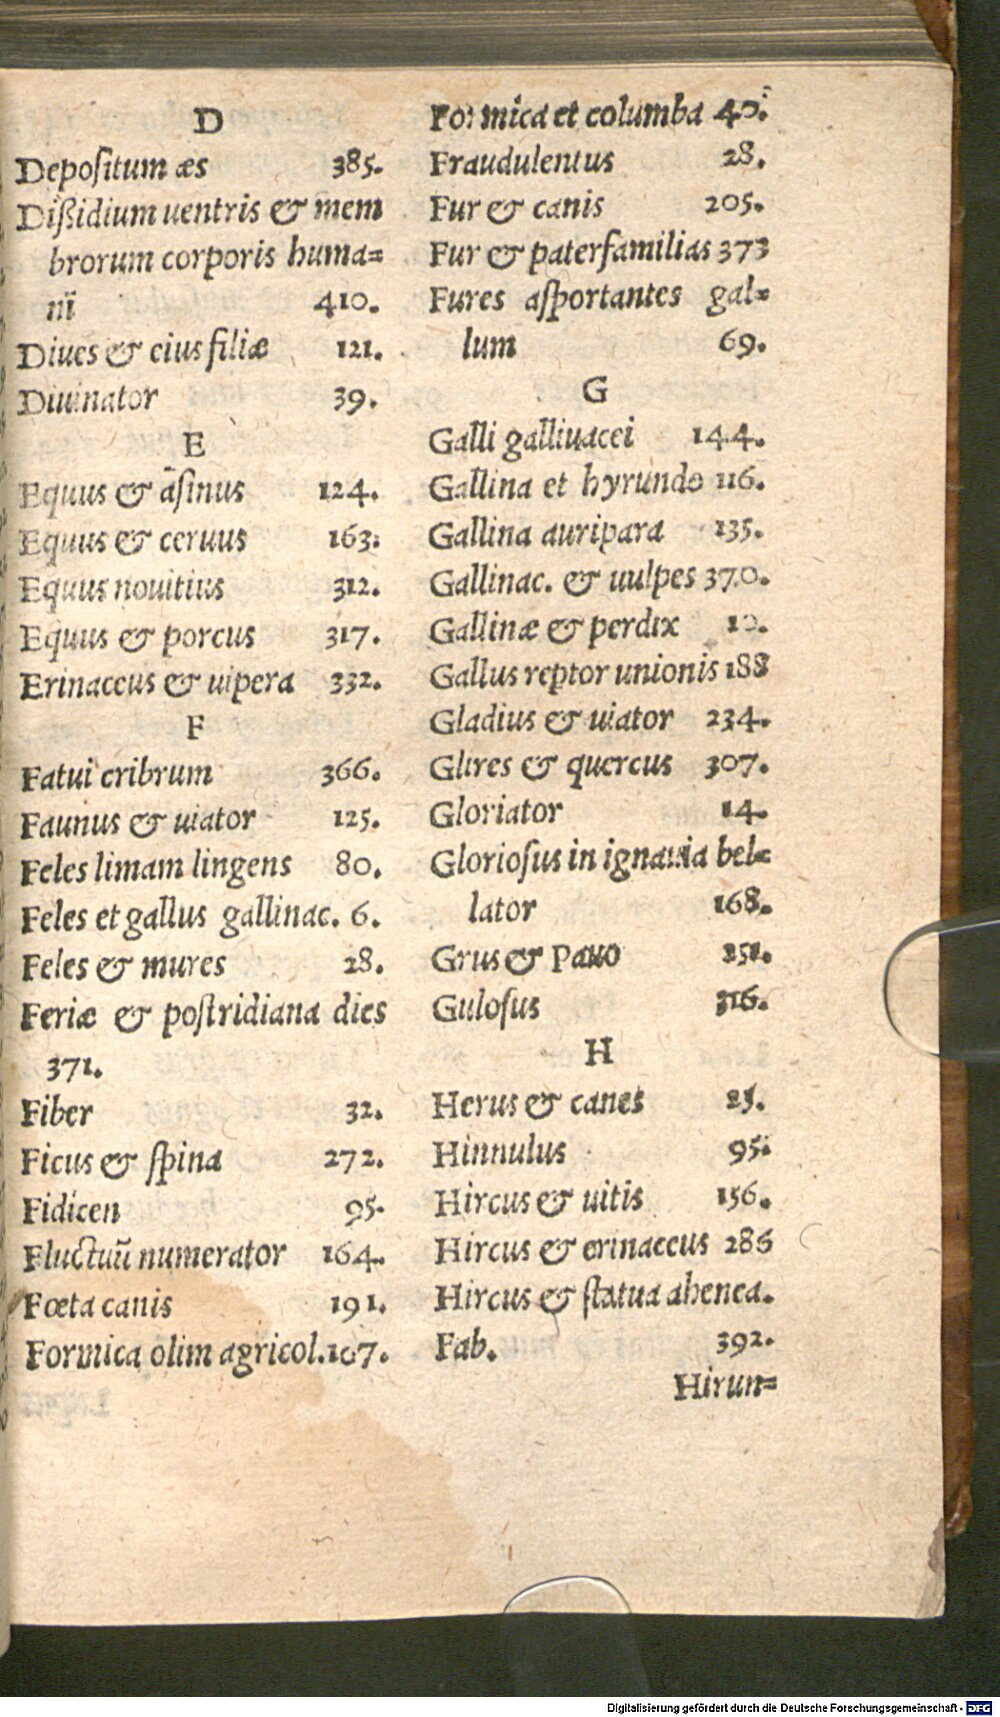 D
Depoſitum æs 385.
Dißidium uentris & mem
brorum corporis huma=
nĳ 410.
Diues & eius filiæ 121.
Diuinator 39.
E
Equus & aſinus 124.
Equus & ceruus 163.
Equus nouitius 312.
Equus & porcus 317.
Erinaceus & uipera 332.
F
Fatui cribrum 366.
Faunus & uiator 125.
Feles limam lingens 80.
Feles et gallus gallinac. 6.
Feles & mures 28.
Feriæ & poſtridiana dies
371.
Fiber 32.
Ficus & ſpina 272.
Fidicen 95.
Fluctuū numerator 164.
Fœta canis 191.
Formica olim agricol. 107.
Formica et columba 40.
Fraudulentus 28.
Fur & canis 205.
Fur & paterfamilias 373
Fures aſportantes gal=
lum 69.
G
Galli galliuacei 144.
Gallina et hyrundo 116.
Gallina auripara 135.
Gallinac. & uulpes 370.
Gallinæ & perdix 10.
Gallus reptor unionis 188
Gladius & uiator 234.
Glires & quercus 307.
Gloriator 14.
Glorioſus in ignauia bel=
lator 168.
Grus & Pauo 251.
Guloſus 316.
H
Herus & canes 25.
Hinnulus 95.
Hircus & uitis 156.
Hircus & erinaceus 286
Hircus & ſtatua ahenea.
Fab. 392.
Hirun=
Digitalisierung gefördert durch die Deutsche Forschungsgemeinschaft - DFG